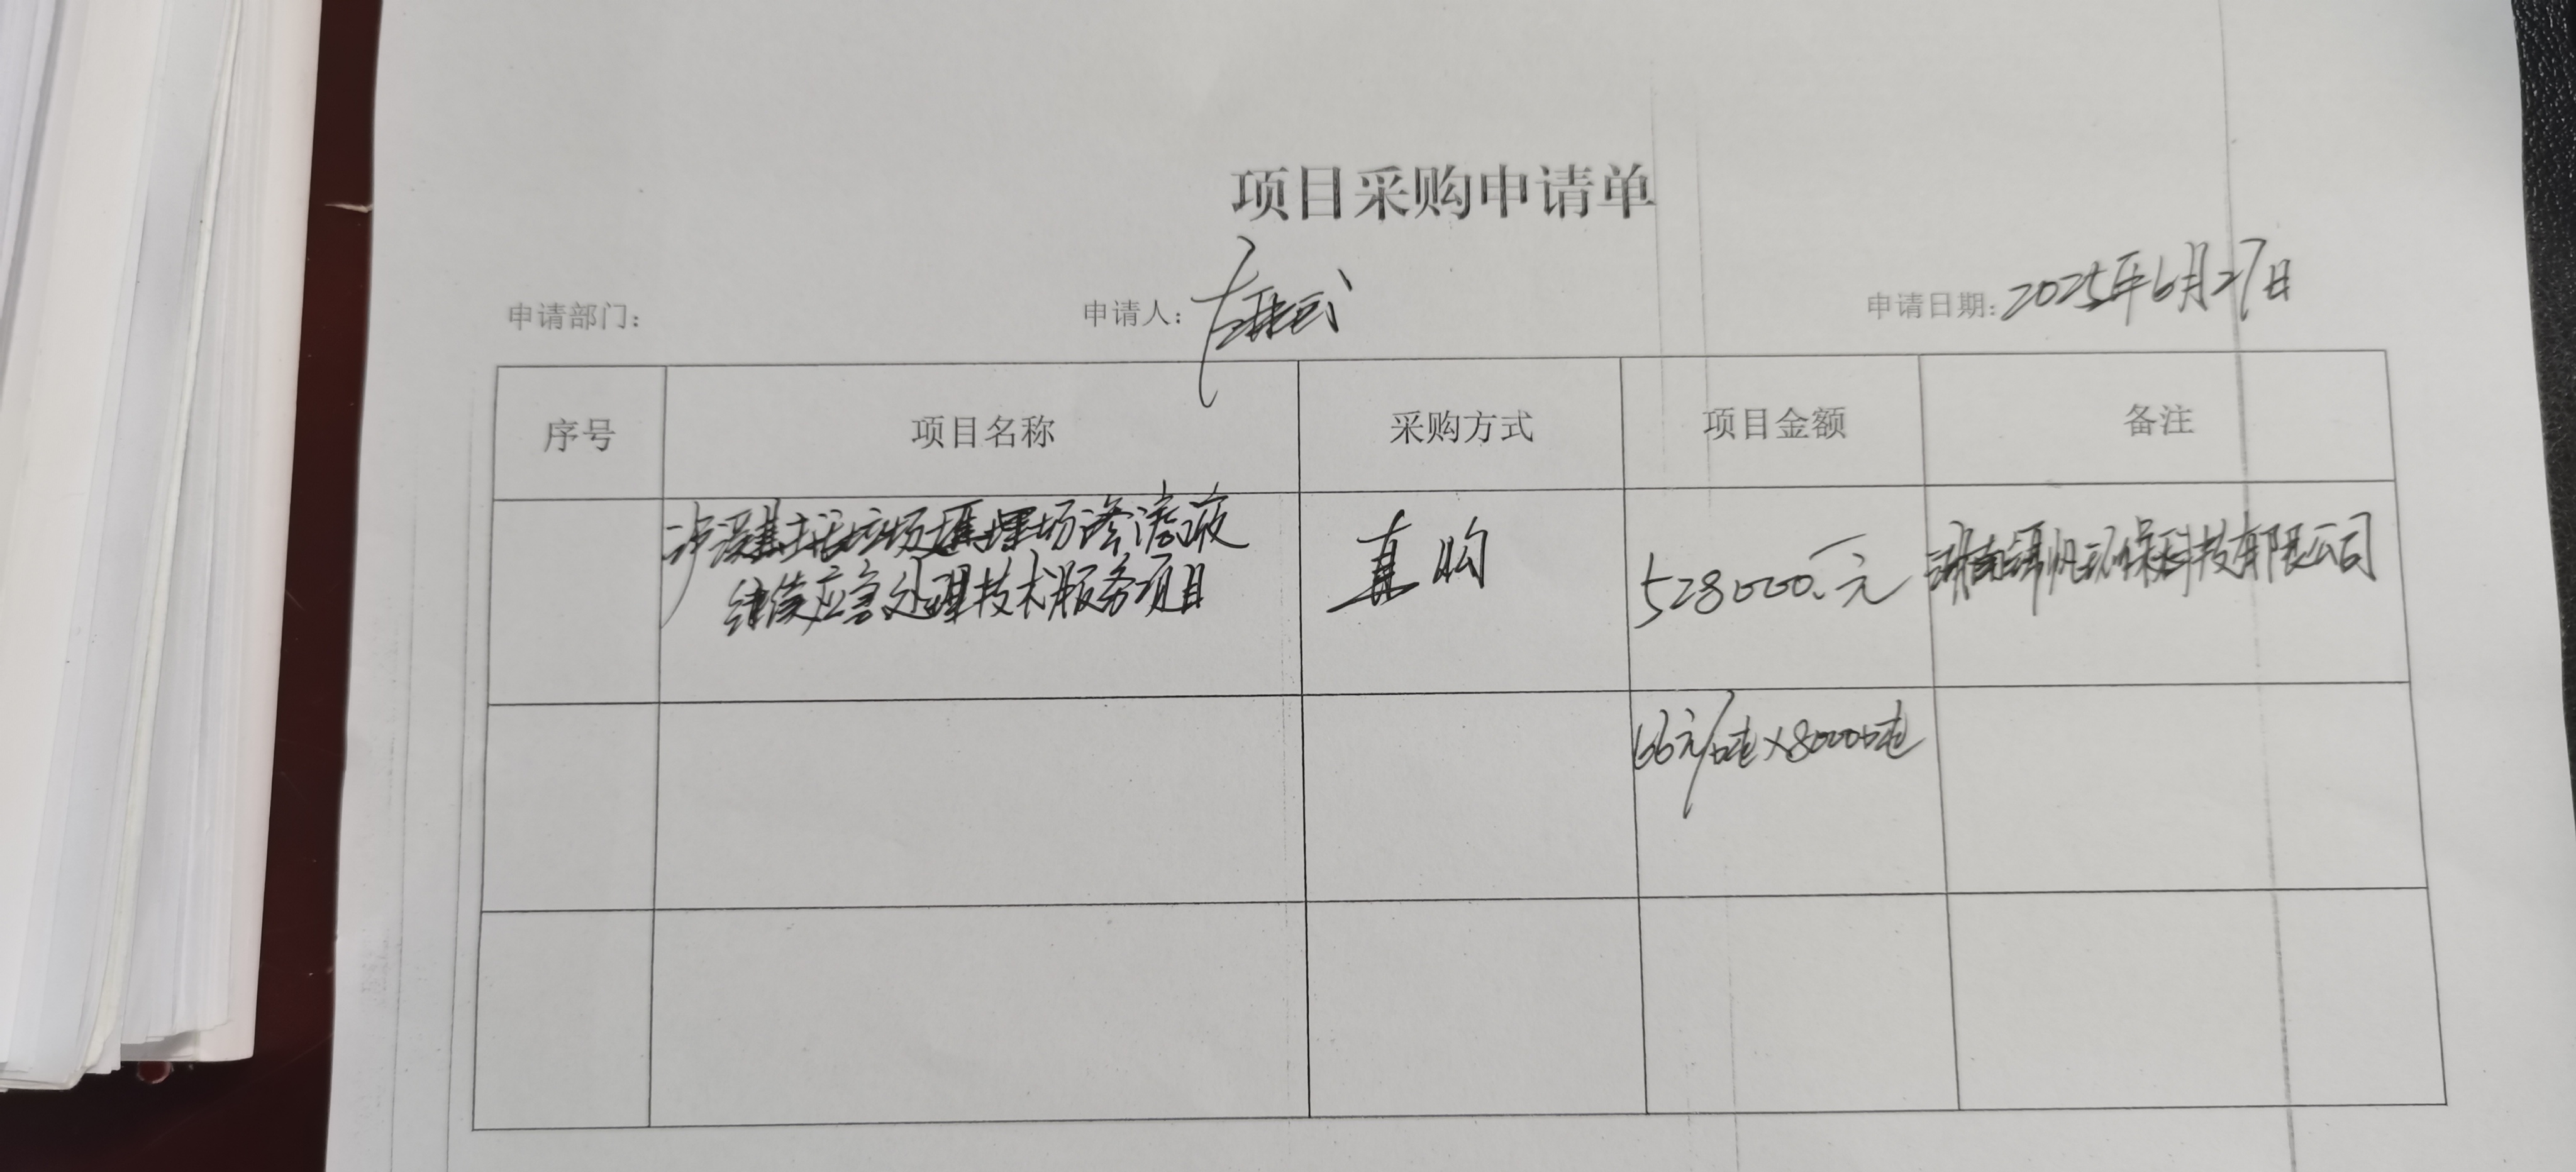 项目采购申请单
申请部门: 申请人: 申请日期: 2025年6月27日
序号 项目名称 采购方式 项目金额 备注
泸溪县生活垃圾填埋场渗滤液 直购 528000.元 湖南 帆环保科技有限公司
继续应急处理技术服务项目
66元/吨×8000吨